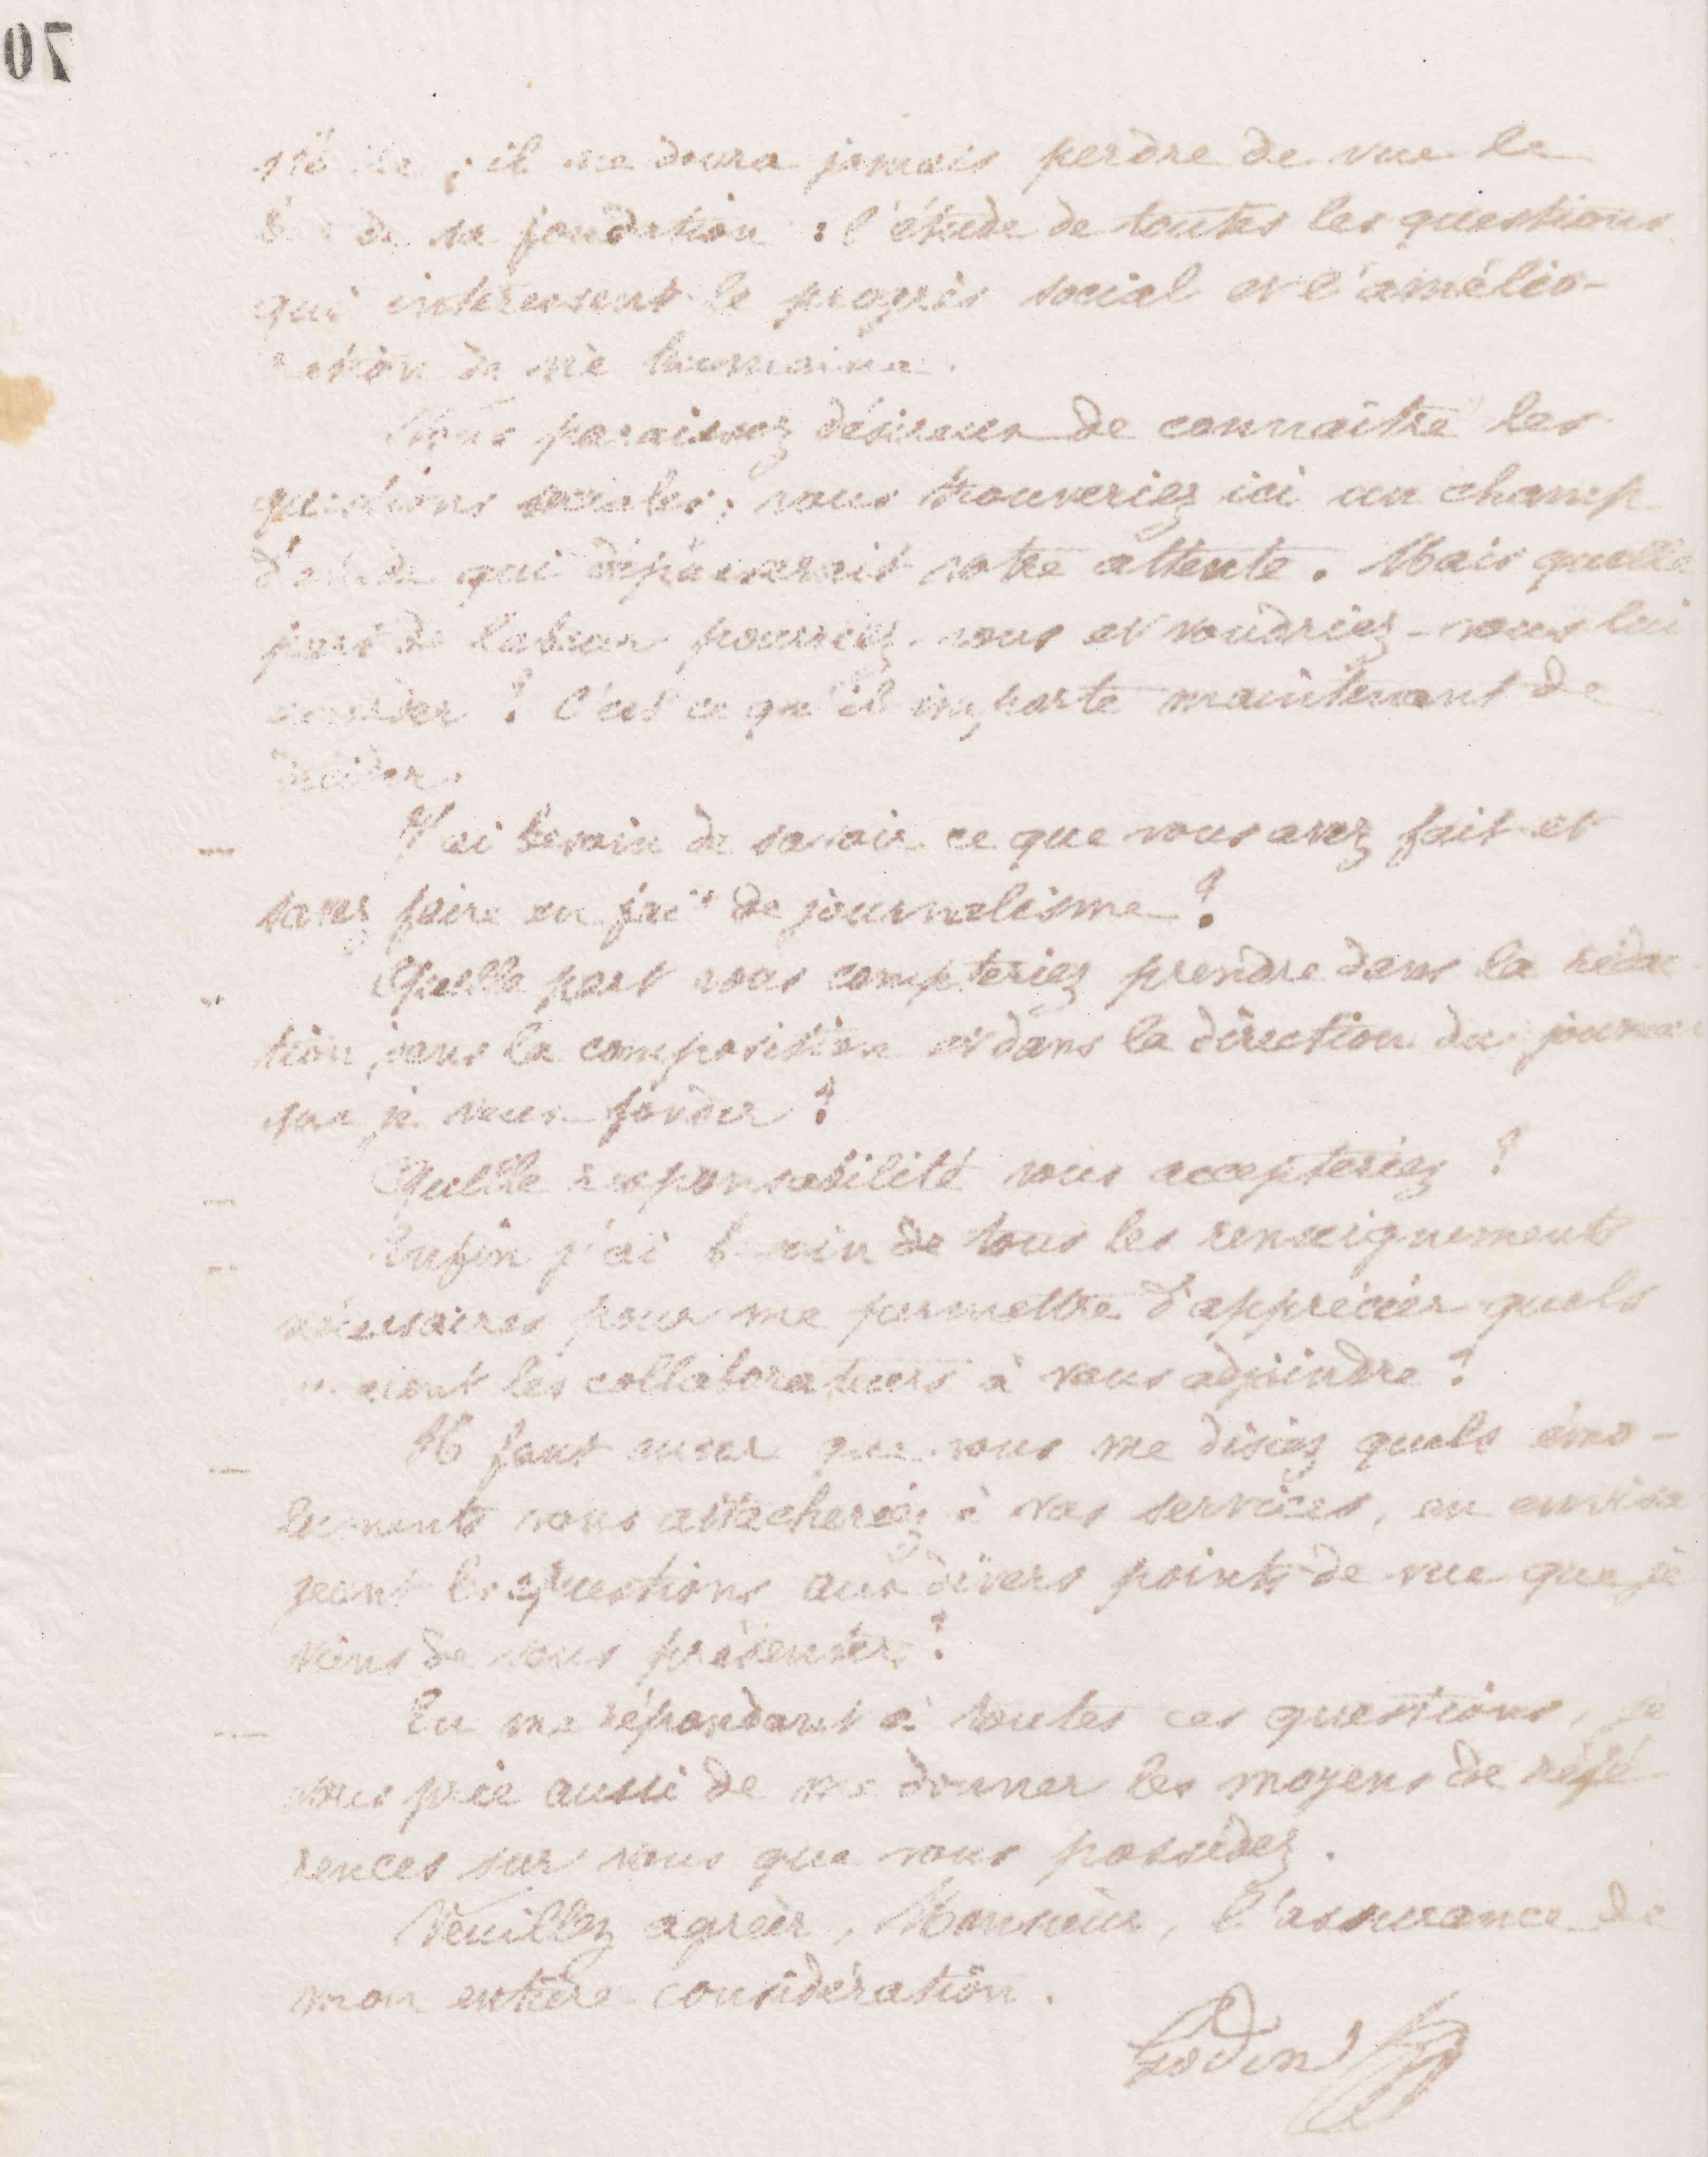 70
; il ne devra jamais perdre de vue le
de sa fondation : l'étude de toutes les questions
qui intéressent le progrès social et l'amélio-
ration de vie humaine.
Vous paraissez désireux de connaître les
questions sociales ; vous trouveriez ici un champ
d'étude qui dépasserait votre attente. Mais quelle
part de labeur pourriez-vous et voudriez-vous lui
? C'est ce qu'il importe maintenant de
décider.
J'ai besoin de savoir ce que vous avez fait et
savez faire en fait de journalisme ?
Quelle part vous compteriez prendre dans la rédac
tion, dans la composition et dans la direction du journal
que je veux fonder ?
Quelle responsabilité vous accepteriez ?
Enfin j'ai besoin de tous les renseignements
nécessaires pour me permettre d'apprécier quels
seraient les collaborateurs à vous adjoindre ?
Il faut aussi que vous me disiez quels émo-
luments vous attacheriez à vos services, en envisa
geant les questions aux divers points de vue que je
viens de vous présenter ?
En me répondant à toutes ces questions, je
vous prie aussi de me donner les moyens de réfé
rences sur vous que vous possédez.
Veuillez agréer, Monsieur, l'assurance de
mon entière considération.
Godin